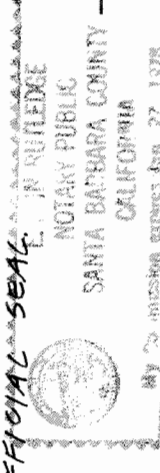 OFFICIAL SEAL
RUTLEDGE
NOTARY PUBLIC
SANTA BARBARA COUNTY
CALIFORNIA
My Commission expires 1978